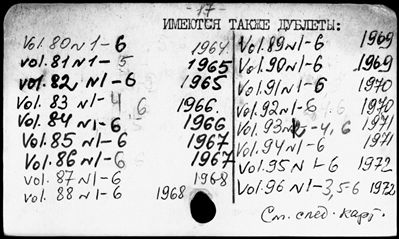 -17-
ИМЕЮТСЯ ТАКЖЕ ДУБЛЕТЫ:
Vol. 80 N1-6 1964
Vol. 81 N1-5 1965
Vol. 82 N1-6 1965
Vol. 83 N1-4 6 1966.
Vol. 84 N1-6 1966
Vol. 85 N1-6 1967
Vol. 86 N1-6 1967
Vol. 87 N1-6 1968
Vol. 88 N1-6 1968
Vol. 89 N1-6 1969
Vol. 90 N1-6 1969
Vol. 91 N1-6 1970
Vol. 92 N1-6 1970
Vol. 93 -4, 6 1971
Vol. 94 N1-6 1971
Vol. 95 N1-6 1972
Vol. 96 N1-3,5-6 1972
См. след. карт.